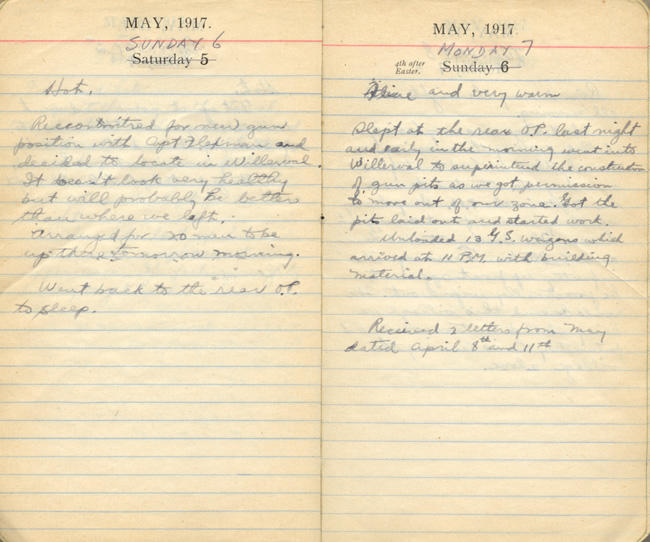 MAY, 1917.
SUNDAY 6
Saturday 5
Hot.
Reconnoitred for new gun
position with Capt and
decided to locate in Willerval.
It doesn't look very healthy
but will probably be better
than where we left.
Arranged for 20 men to be
up there tomorrow morning.
Went back to the rear O.P.
to sleep.
MAY, 1917.
MONDAY 7
4th after
Easter.
Sunday 6
Fine and very warm
Slept at the rear O.P. last night
and early in the morning went into
Willerval to superintend the construction
of gun pits as we got permission
to move out of our zone. Got the
pits laid out and started work.
Unloaded 13 G.S. wagons which
arrived at 11 P.M. with building
material.
Received 2 letters from May
dated April 8th and 11th